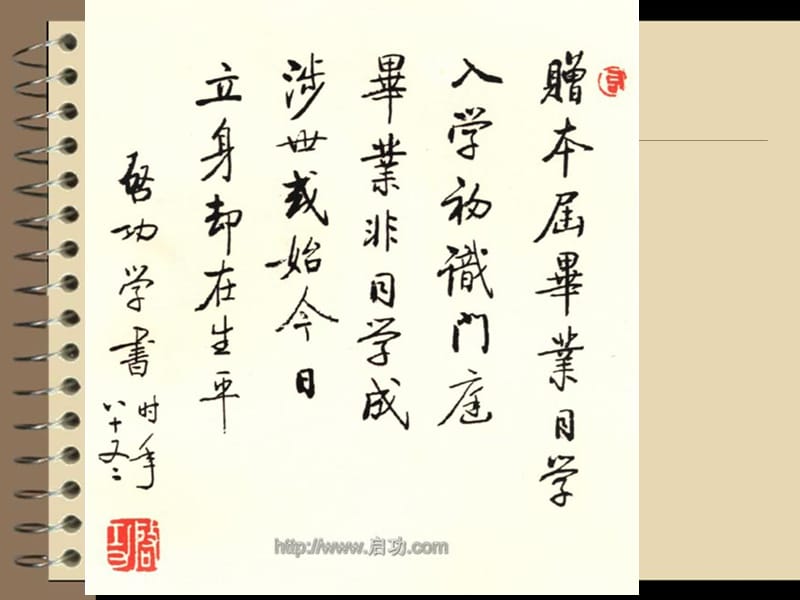 贈本屆畢業同学
入学初識門庭
畢業非同学成
涉世或始今日
立身却在生平
啓功学書
时年
八十又二
http://www.启功.com